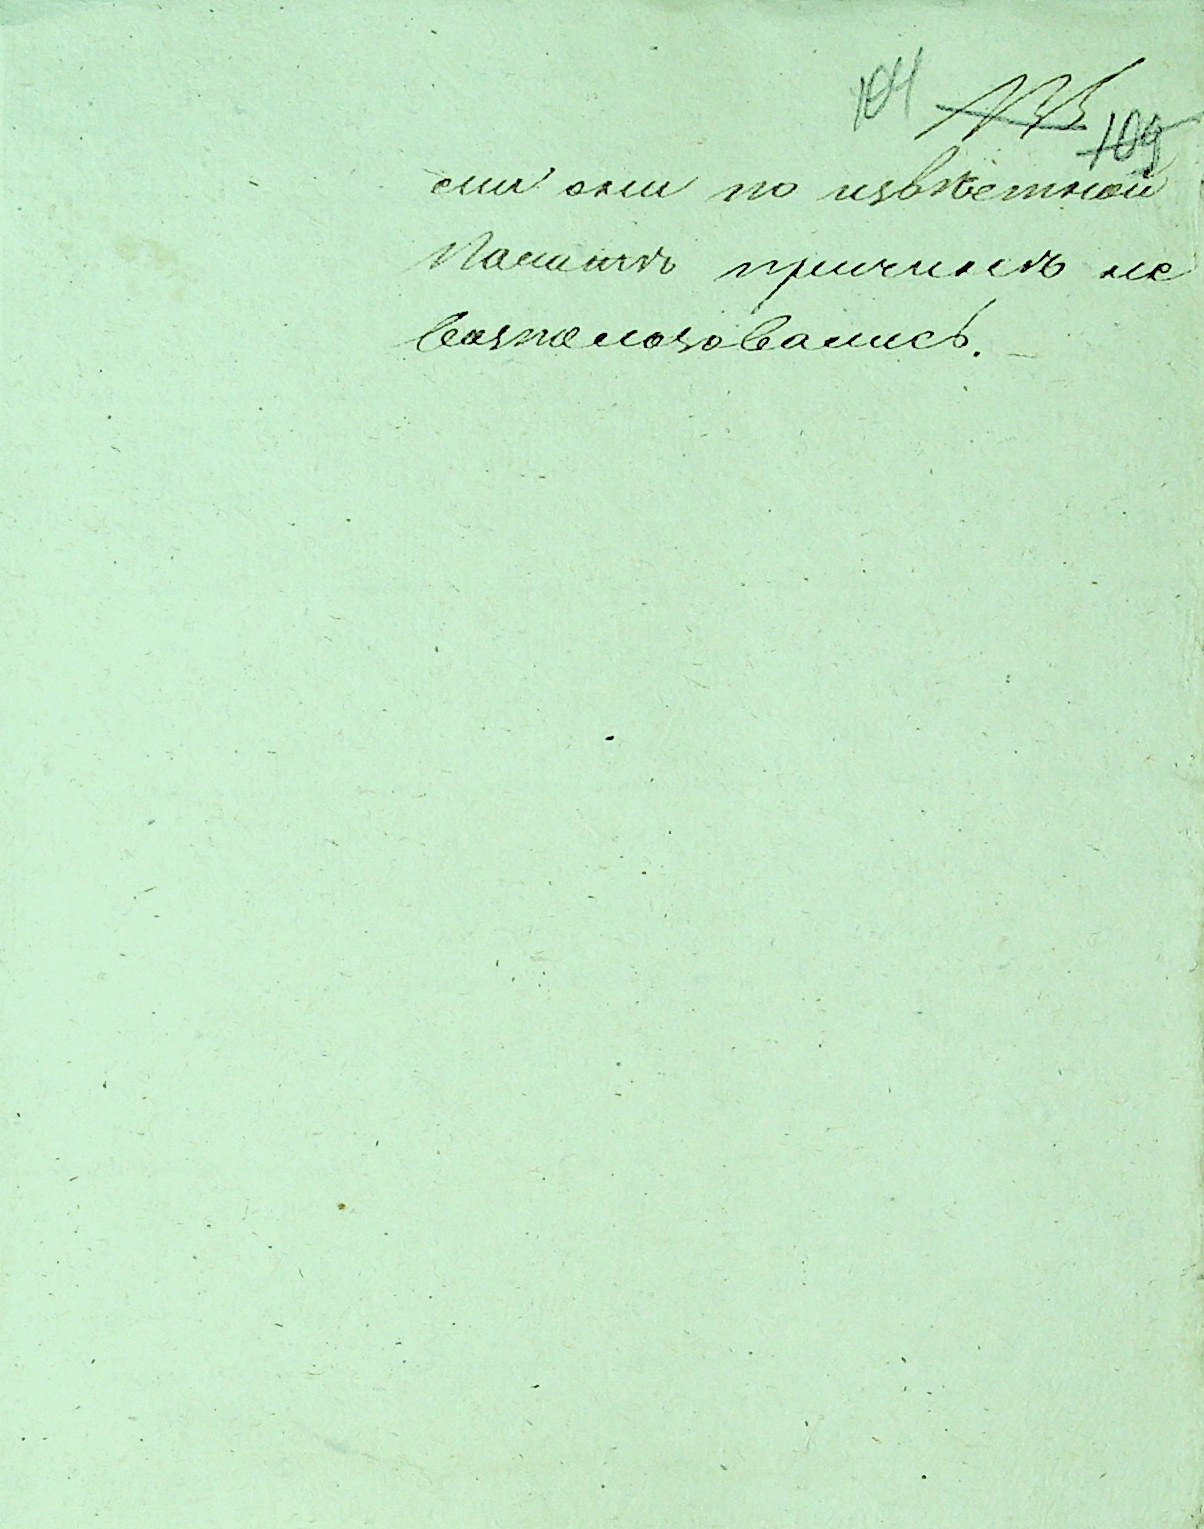 104 109
ми они по извѣстной
Палатѣ причинѣ не
воспользовались.